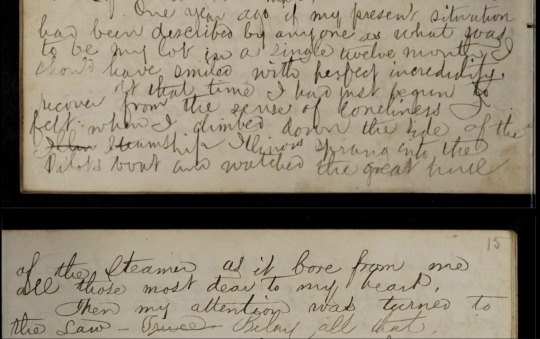 One year ago if my present situation
had been described by anyone as what was
to be my lot in a single twelve month, I
should have smiled with perfect incredulity.
At that time I had just begun to
recover from the sense of loneliness I
felt when I climbed down the side of the
Steamship Illinois sprang into the
Pilots boat and watched the great hull
15
of the Steamer as it bore from me
all those most dear to my heart.
Then my attention was turned to
the Law - Truce - Belay all that.